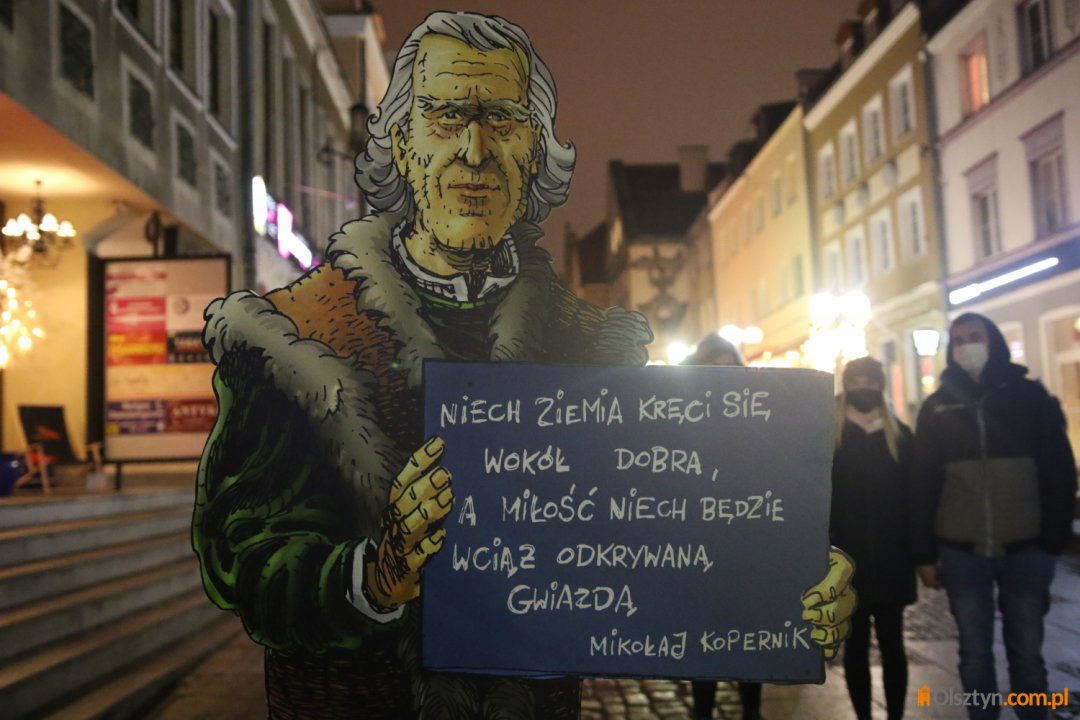 NIECH ZIEMIA KRĘCI SIĘ
WOKÓŁ DOBRA,
A MIŁOŚĆ NIECH BĘDZIE
WCIĄŻ ODKRYWANĄ
GWIAZDĄ
MIKOŁAJ KOPERNIK
Olsztyn.com.pl